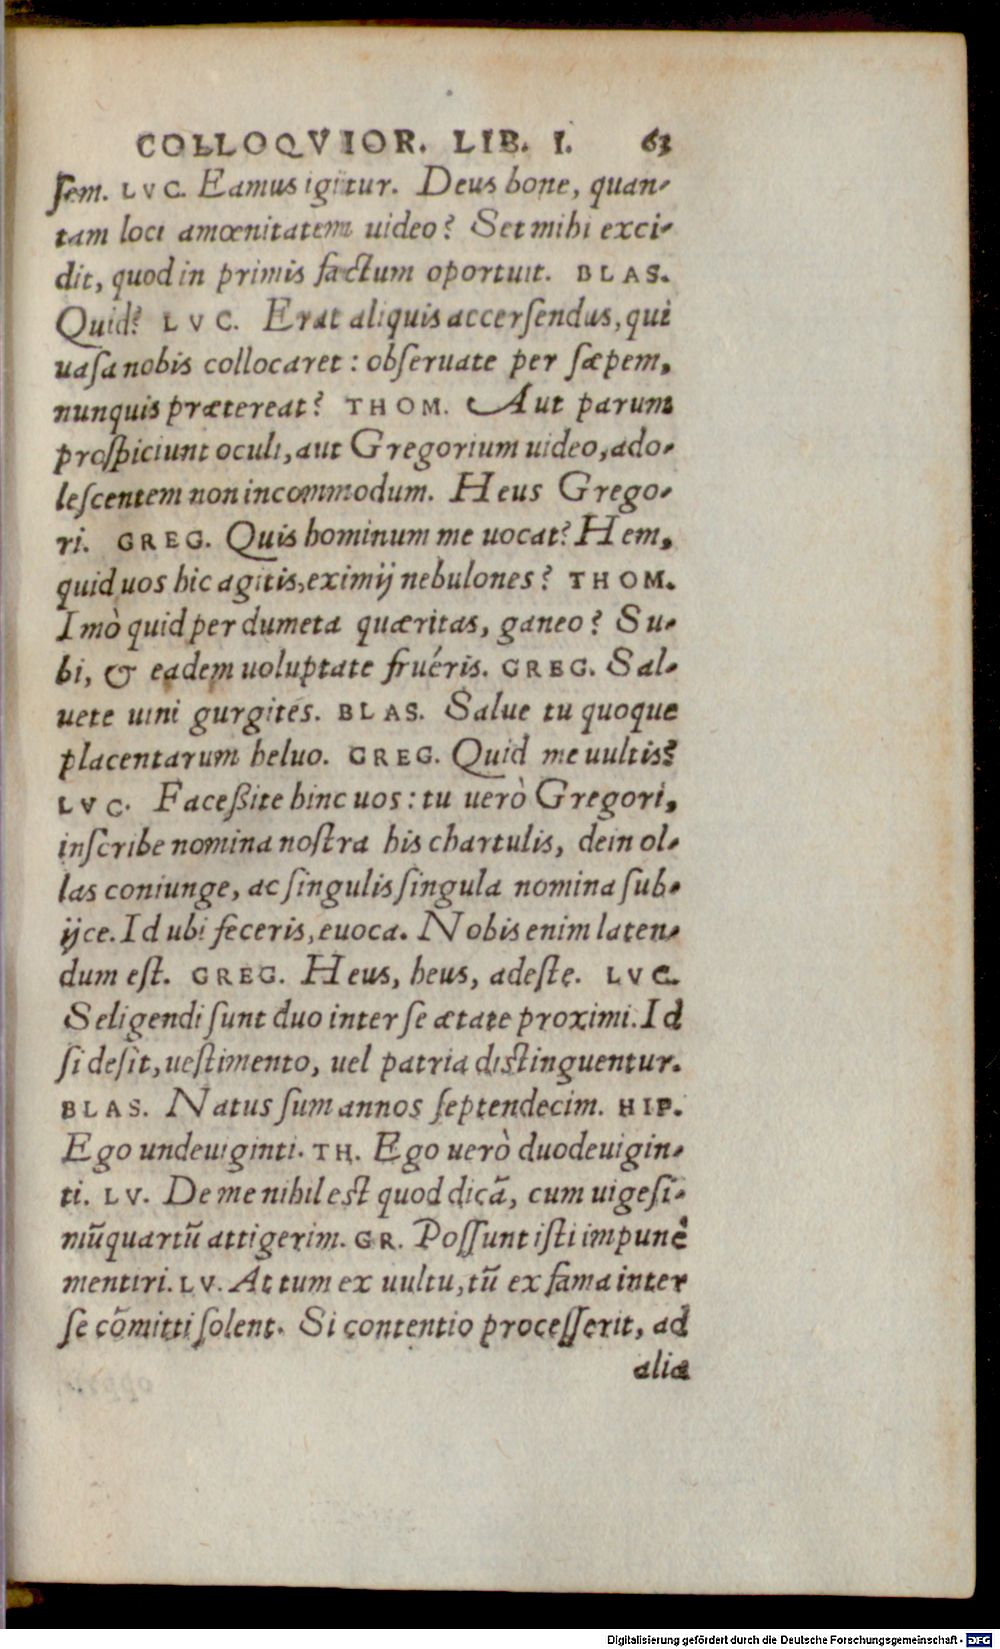 COLLOQVIOR. LIB. I. 63
ſem. LVC. Eamus igitur. Deus bone, quan-
tam loci amœnitatem uideo? Set mihi exci-
dit, quod in primis factum oportuit. BLAS.
Quid? LVC. Erat aliquis accerſendus, qui
uaſa nobis collocaret: obſeruate per ſæpem,
nunquis prætereat? THOM. Aut parum
proſpiciunt oculi, aut Gregorium uideo, ado-
leſcentem non incommodum. Heus Grego-
ri. GREG. Quis hominum me uocat? Hem,
quid uos hic agitis, eximij nebulones? THOM.
Imò quid per dumeta quæritas, ganeo? Su-
bi, & eadem uoluptate fruéris. GREG. Sal-
uete uini gurgites. BLAS. Salue tu quoque
placentarum heluo. GREG. Quid me uultis?
LVC. Faceßite hinc uos: tu uerò Gregori,
inſcribe nomina noſtra his chartulis, dein ol-
las coniunge, ac ſingulis ſingula nomina ſub-
ijce. Id ubi feceris, euoca. Nobis enim laten-
dum eſt. GREG. Heus, heus, adeſte. LVC.
Seligendi ſunt duo inter ſe ætate proximi. Id
ſi deſit, ueſtimento, uel patria diſtinguentur.
BLAS. Natus ſum annos ſeptendecim. HIP.
Ego undeuiginti. TH. Ego uerò duodeuigin-
ti. LV. De me nihil eſt quod dicã, cum uigeſi-
mũquartũ attigerim. GR. Poſſunt iſti impunè
mentiri. LV. At tum ex uultu, tũ ex fama inter
ſe cõmitti ſolent. Si contentio proceſſerit, ad
alia
Digitalisierung gefördert durch die Deutsche Forschungsgemeinschaft - DFG